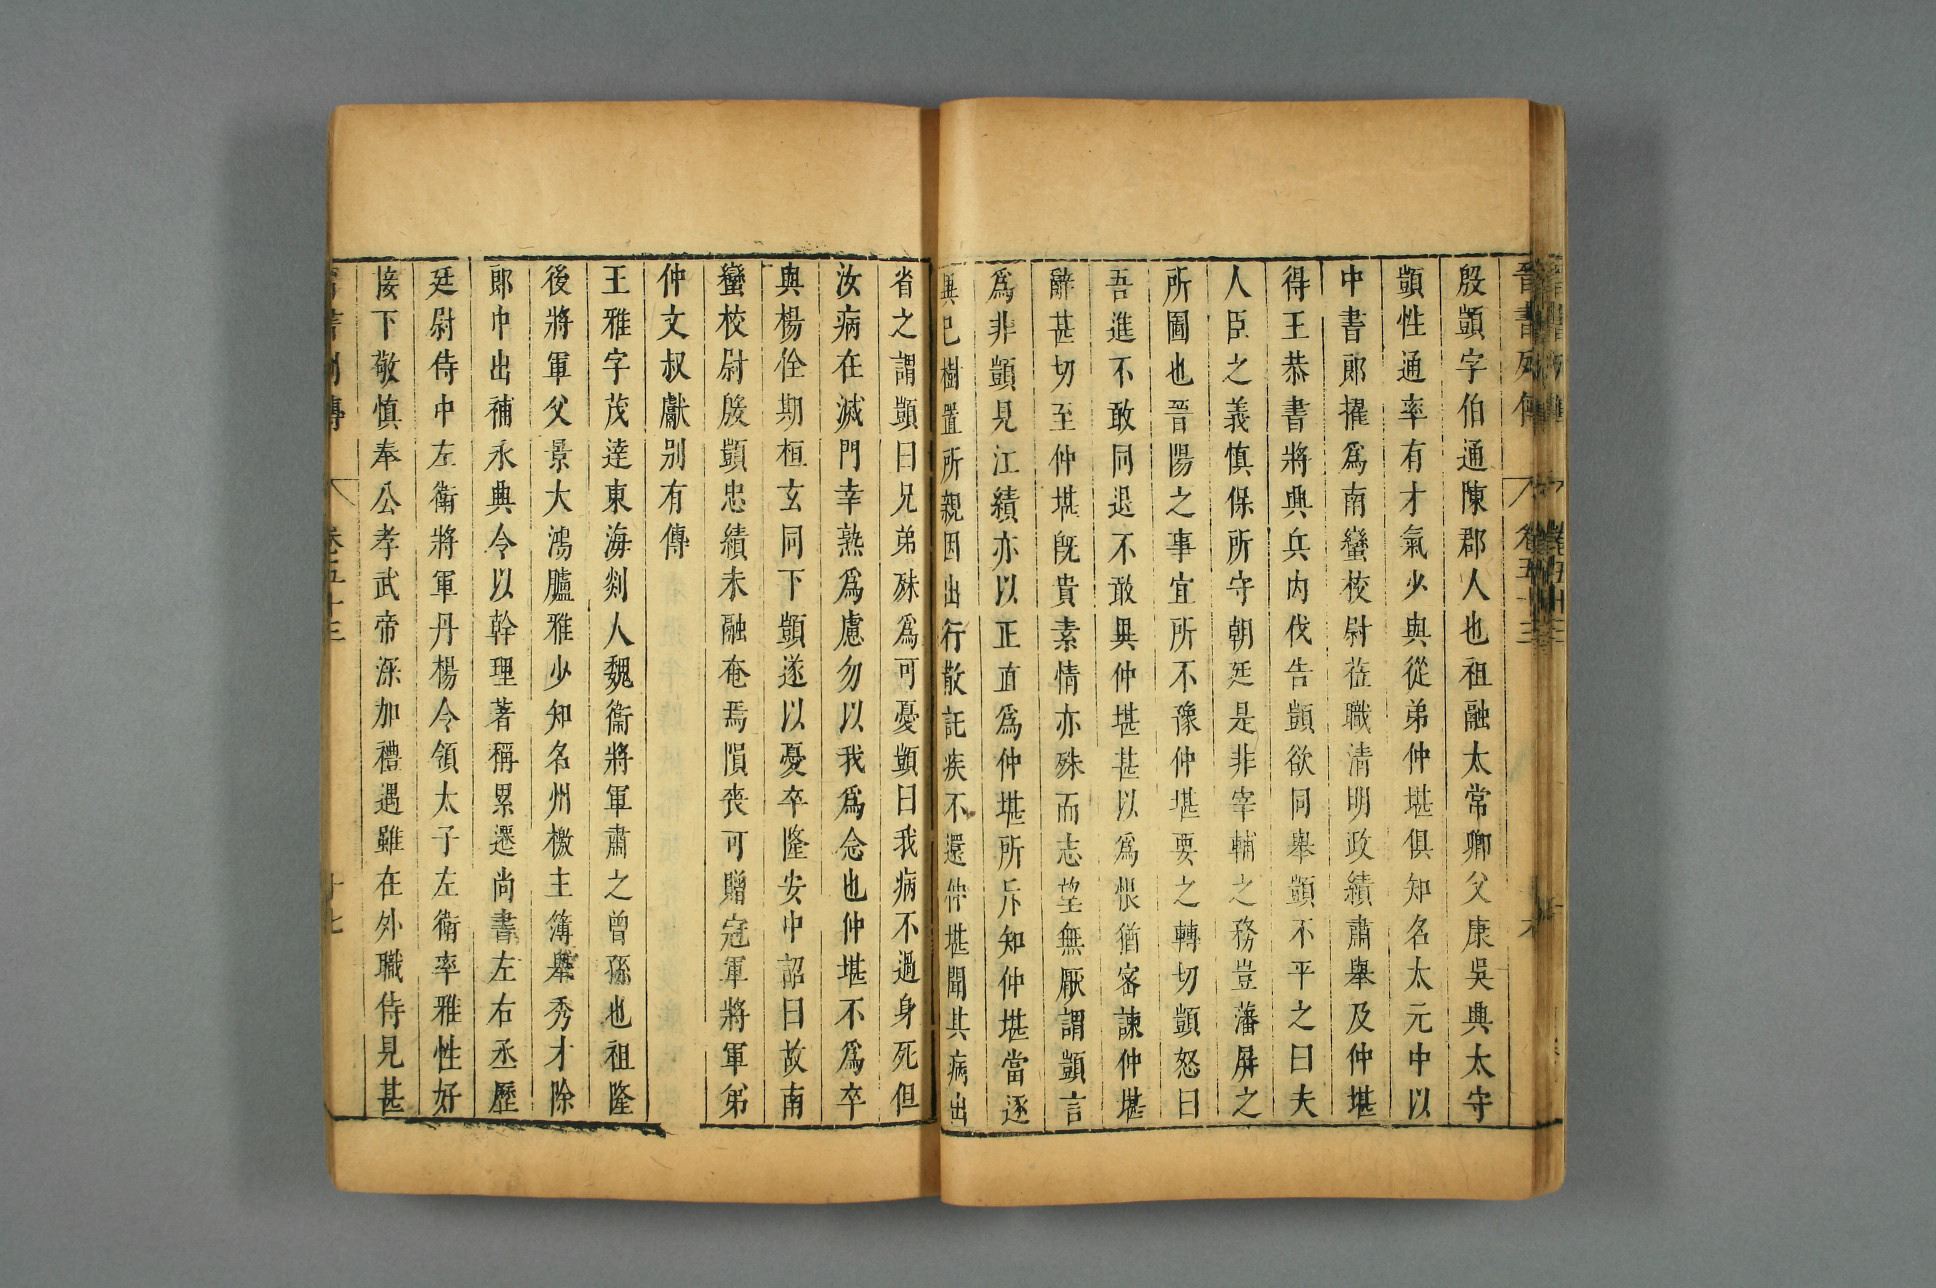 晉書列傳 卷五十三
殷顗字伯通陳郡人也祖融太常卿父康吳興太守
顗性通率有才氣少與從弟仲堪俱知名太元中以
中書郎擢爲南蠻校尉莅職清明政績肅舉及仲堪
得王恭書將興兵內伐告顗欲同舉顗不平之曰夫
人臣之義慎保所守朝廷是非宰輔之務豈藩屏之
所圖也晉陽之事宜所不豫仲堪要之轉切顗怒曰
吾進不敢同退不敢異仲堪甚以爲恨猶密諫仲堪
辭甚切至仲堪旣貴素情亦殊而志望無厭謂顗言
爲非顗見江績亦以正直爲仲堪所斥知仲堪當逐
異己樹置所親因出行散託疾不還仲堪聞其病出
省之謂顗曰兄弟殊爲可憂顗曰我病不過身死但
汝病在滅門幸熟爲慮勿以我爲念也仲堪不爲卒
與楊佺期桓玄同下顗遂以憂卒隆安中詔曰故南
蠻校尉殷顗忠績未融奄焉隕喪可贈冠軍將軍弟
仲文叔獻別有傳
王雅字茂達東海剡人魏衞將軍肅之曾孫也祖隆
後將軍父景大鴻臚雅少知名州檄主簿舉秀才除
郎中出補永興令以幹理著稱累遷尚書左右丞歷
廷尉侍中左衞將軍丹楊令領太子左衛率雅性好
接下敬慎奉公孝武帝深加禮遇雖在外職侍見甚
書列傳 卷五十三 十七